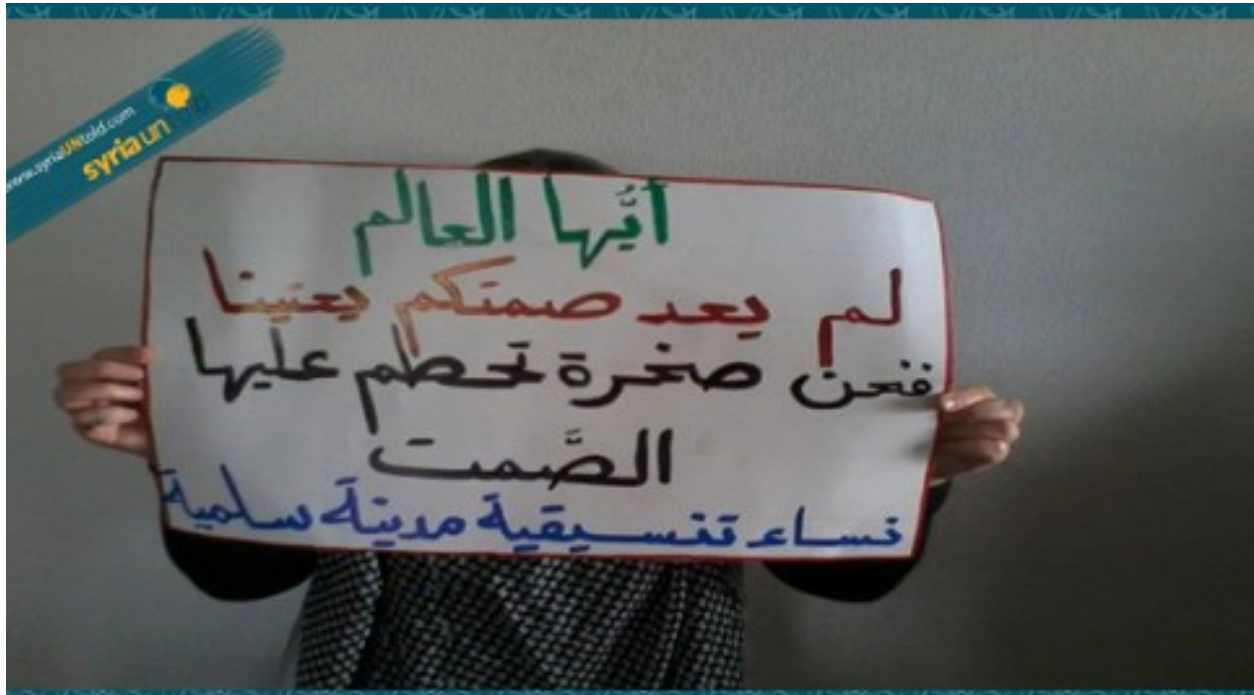 www.syriaUNtold.com
syria un
أيُّها العالم
لم يعد صمتكم يعنينا
فنحن صخرة تحطم عليها
الصَّمت
نساء تنسيقية مدينة سلمية